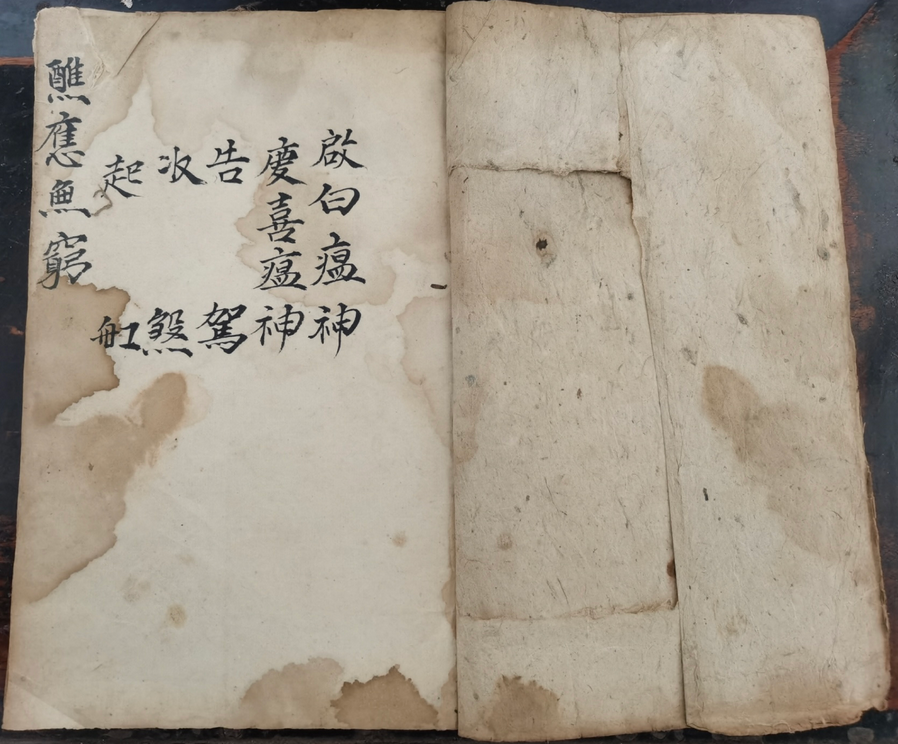 啟白瘟神
慶喜瘟神
告駕
收煞
起舡
醮應魚窮